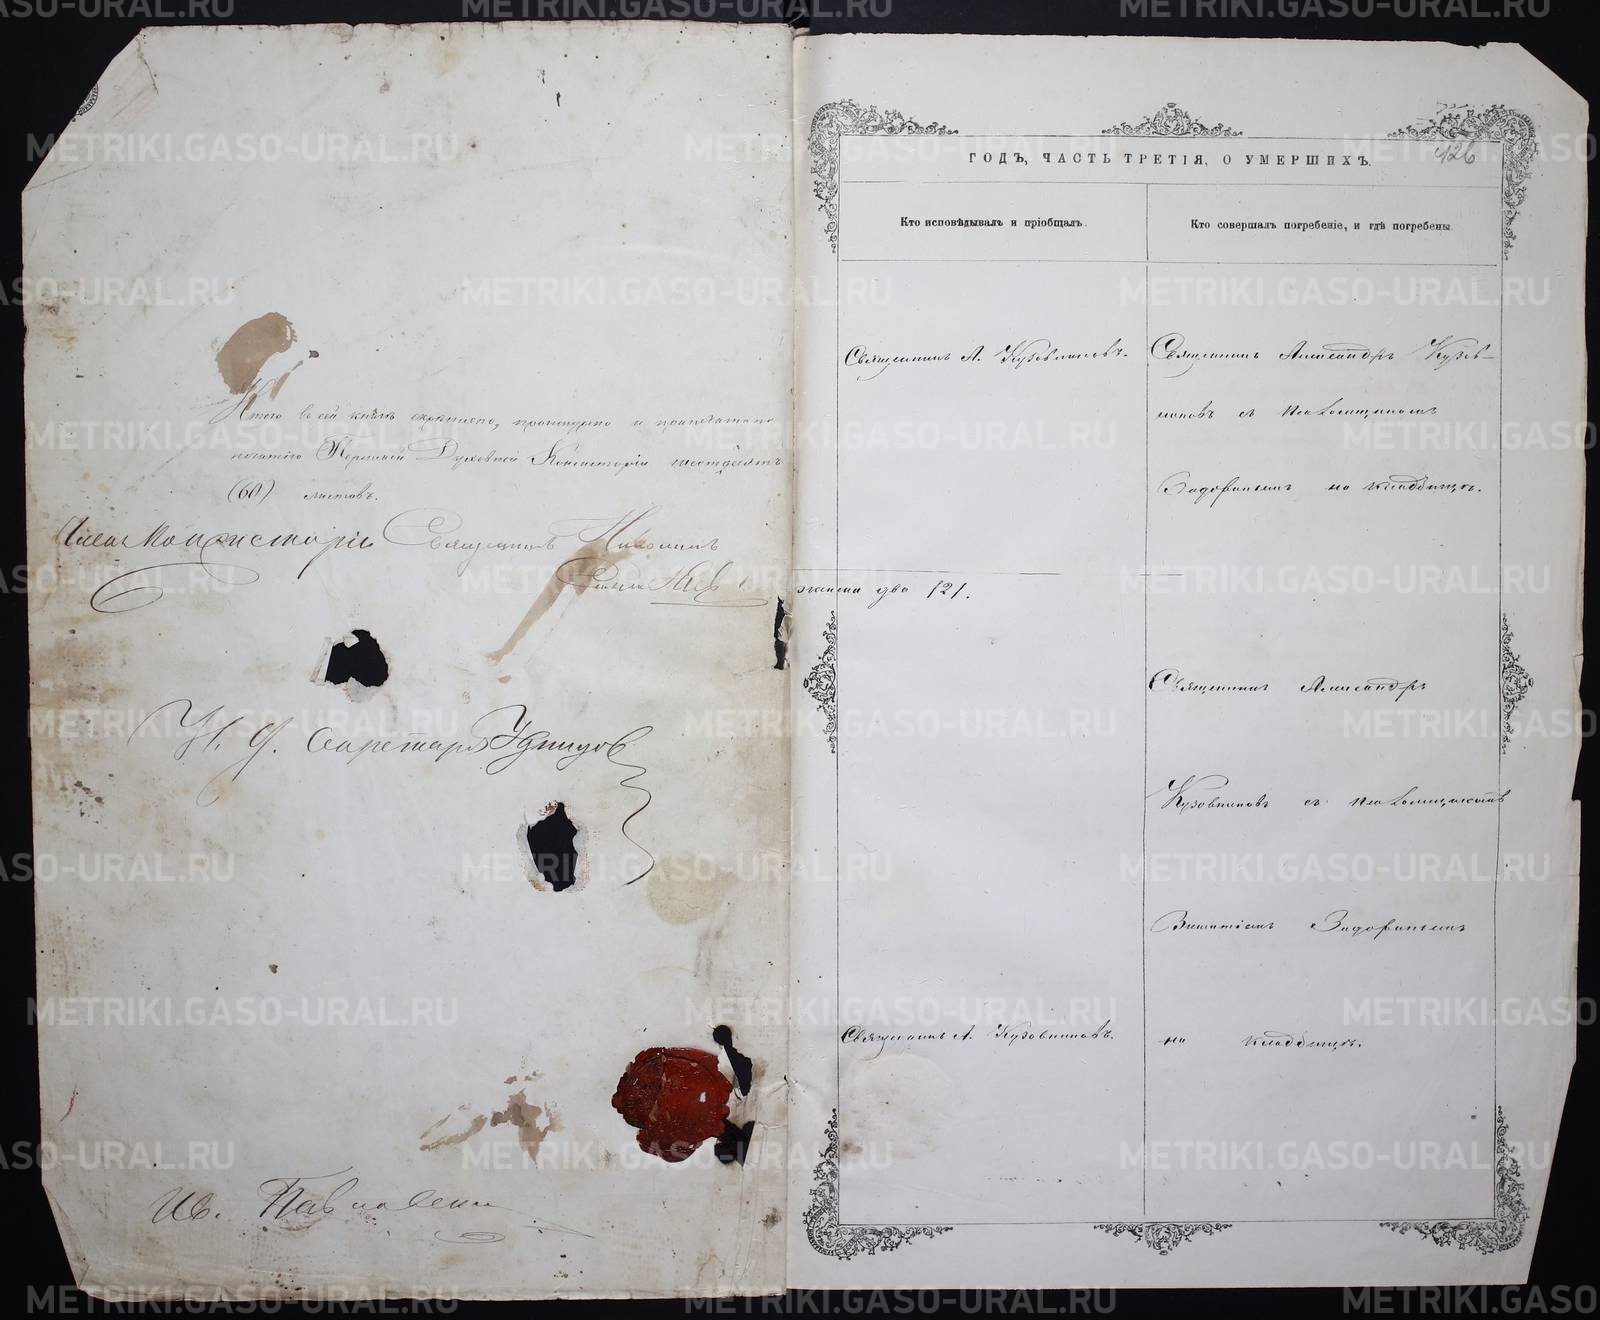 Итого въ сей книгѣ скрѣплено, прошнуровано и припечатано
печатью Пермской Духовной Консисторіи шестьдесятъ
(60) листовъ.
Членъ Консисторіи Священникъ Николай
И. д. Секретаря
Ив.
ГОДЪ, ЧАСТЬ ТРЕТІЯ, О УМЕРШИХЪ.
426
Кто исповѣдывалъ и пріобщалъ.
Кто совершалъ погребеніе, и гдѣ погребены.
Священникъ А. Кузовниковъ.
Священникъ Александръ Кузов-
никовъ съ псаломщикомъ
на кладбищѣ.
два /2/.
Священникъ Александръ
Кузовниковъ съ псаломщикомъ
на кладбищѣ.
Священникъ А. Кузовниковъ.
METRIKI.GASO-URAL.RU